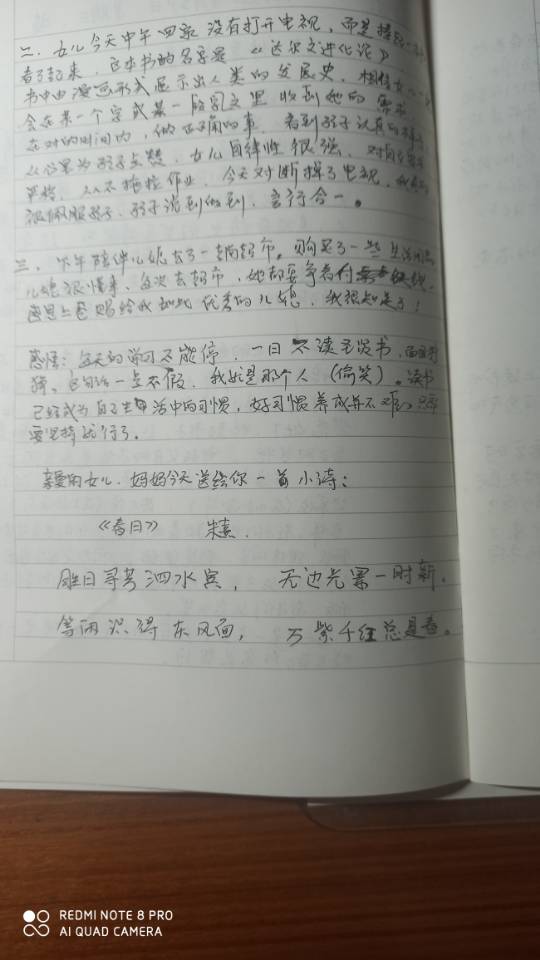 二、女儿今天中午回家没有打开电视，而是
看了起来，这本书的名字是《达尔文进化论》
书中由漫画形式展示出人类的发展史，相信女儿一
会在某一个字或某一段图文里收到她的需
在对的时间内，做正确的事，看到孩子认真的
从心里为孩子点赞，女儿自律性很强，对自己
严格，从不拖拉作业，今天对断掉了电视，我
很佩服孩子，孩子说到做到，言行合一。
三、下午陪伴儿媳去了一趟超市。购买了一些生活用品
儿媳很懂事，每次去超市，她都要争着付钱，
感恩上苍赐给我如此优秀的儿媳，我很知足了！
感悟：每天的学习不能停，一日不读圣贤书，面目
狰，这句话一点不假，我就是那个人（偷笑）。读书
已经成为自己生活中的习惯，好习惯养成并不难，只
要坚持就行了。
亲爱的女儿，妈妈今天送给你一首小诗：
《春日》 朱熹．
胜日寻芳泗水宾， 无边光景一时新．
等闲识得东风面， 万紫千红总是春。
REDMI NOTE 8 PRO
AI QUAD CAMERA